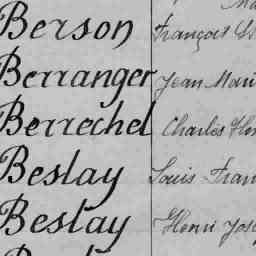 Berson François
Berranger Jean Mari
Berrechel Charles Hen
Beslay Louis Fran
Beslay Henri Jos